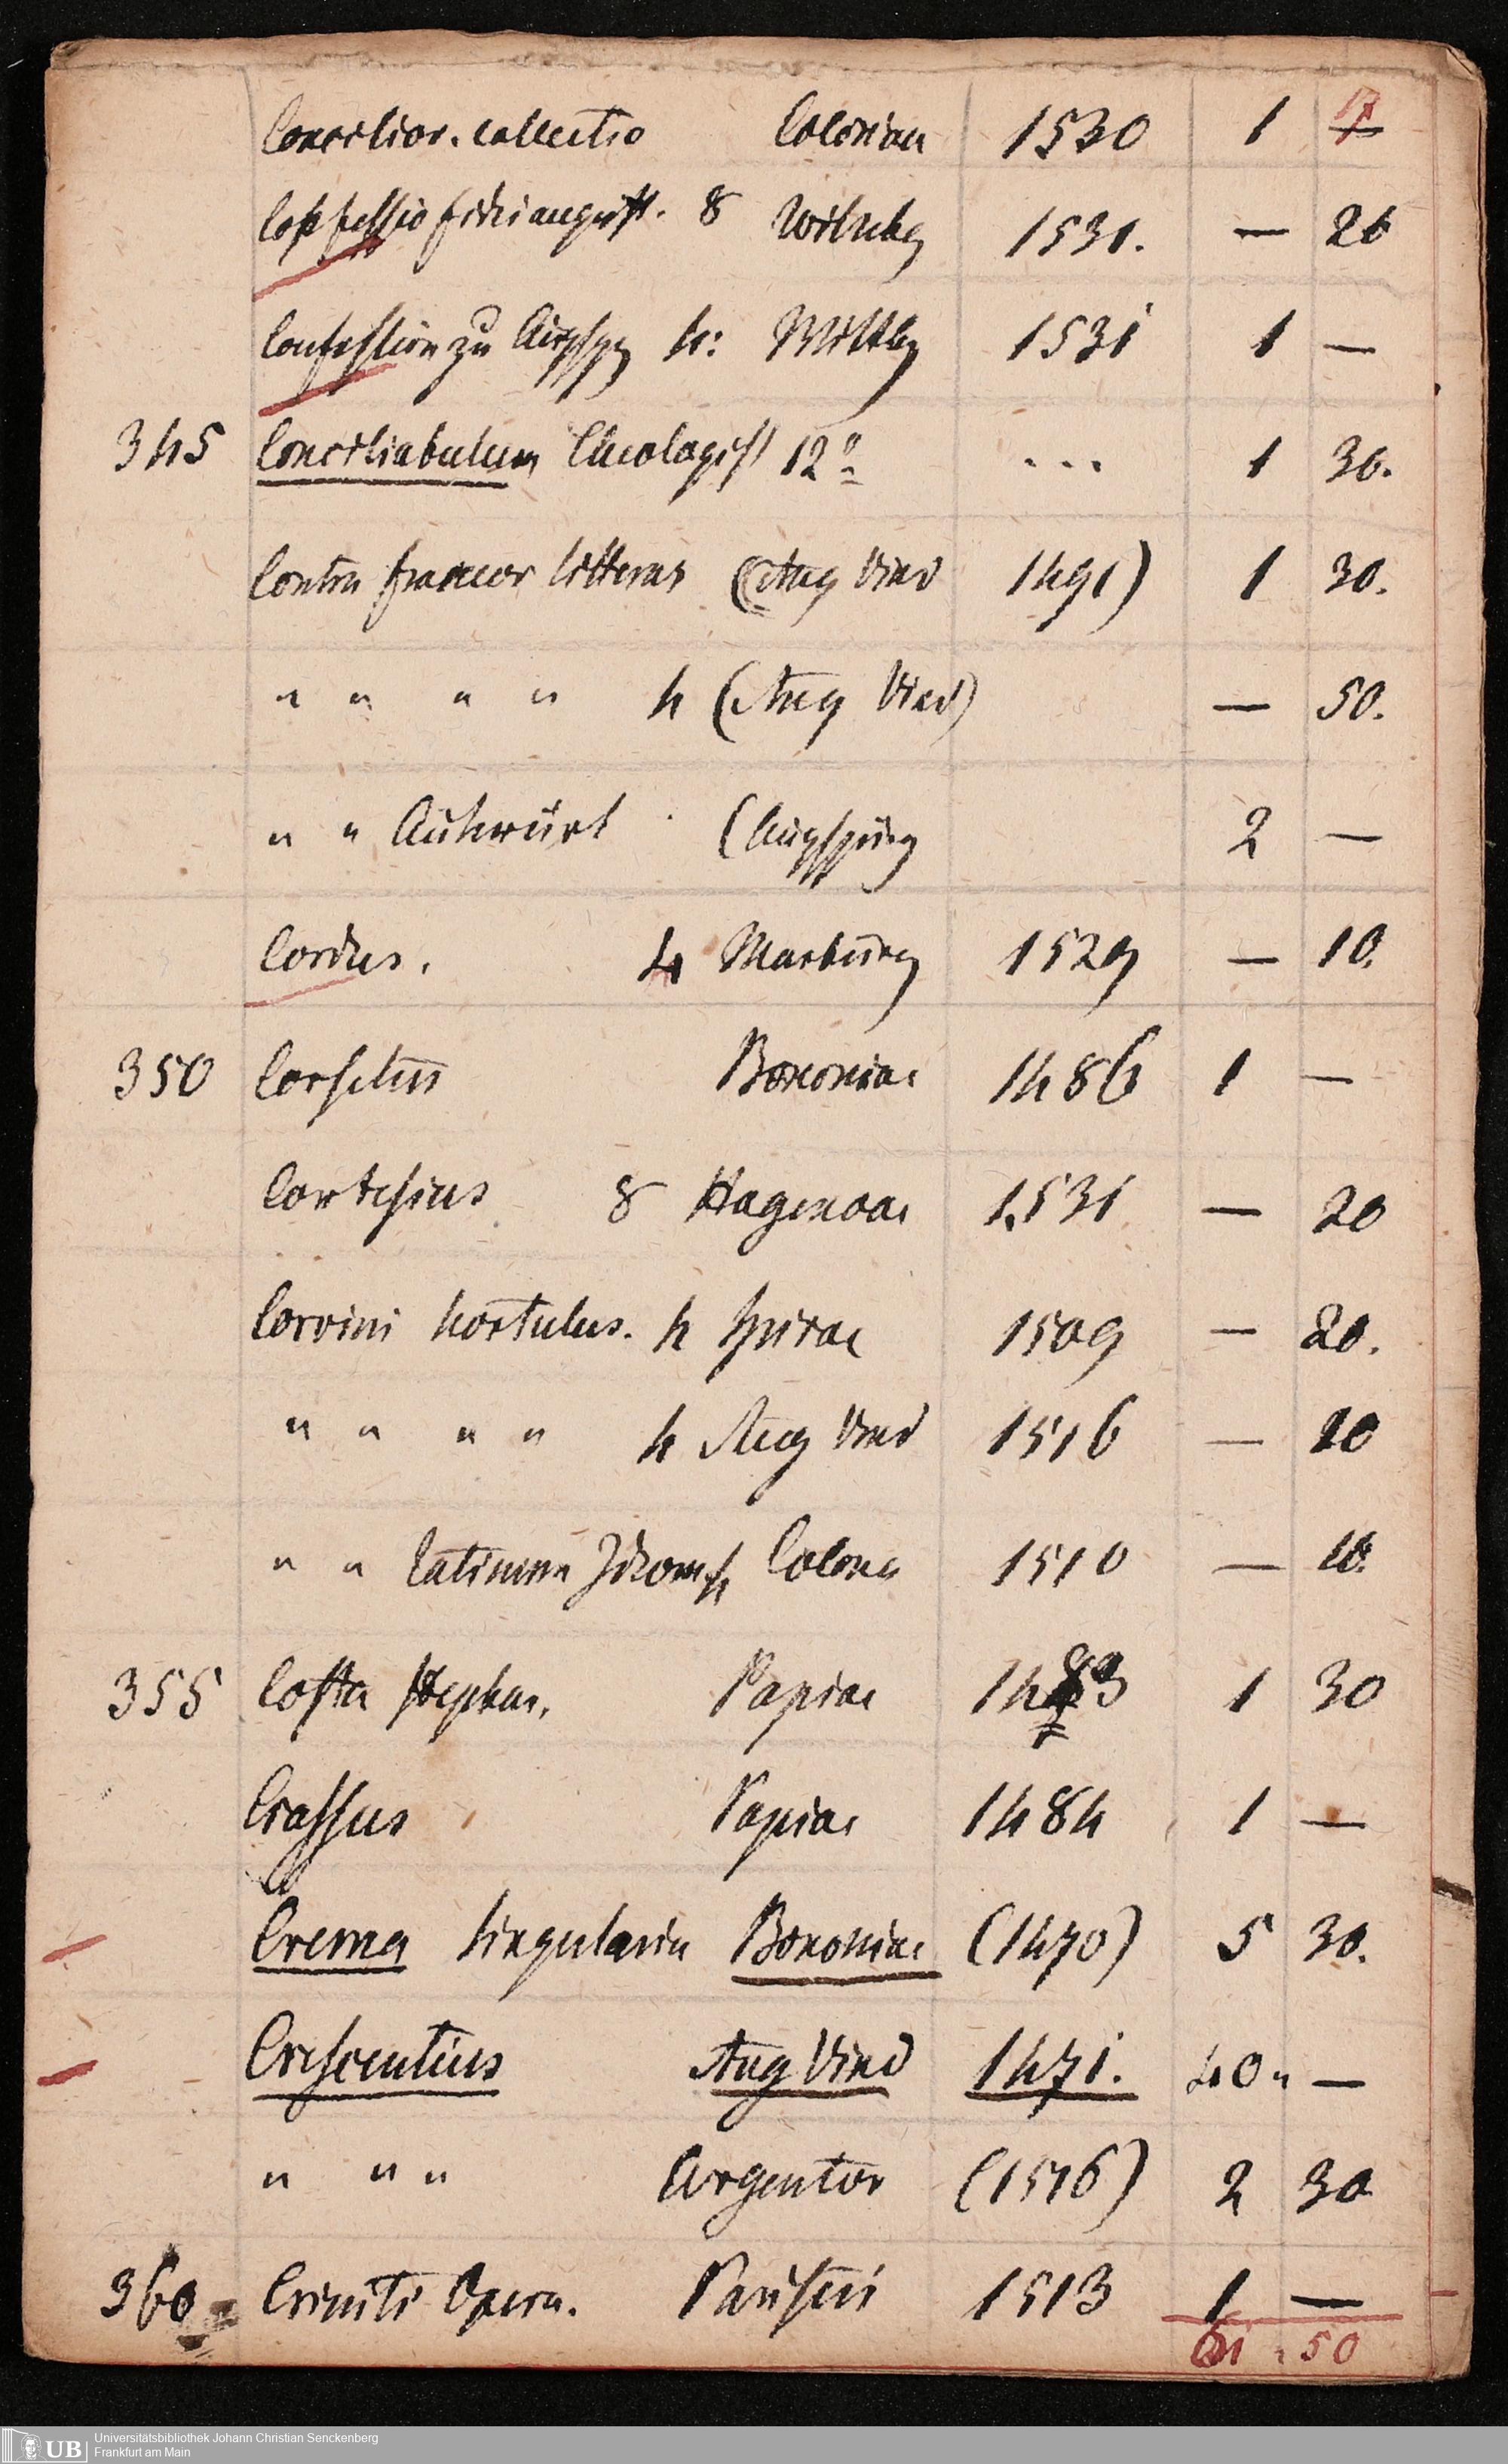 Concilior. collectio Coloniae 1530 1 —
Confessio fidei august. 8 Wittebg 1531. — 20
Confession zu Augspg 4: Wittbg 1531 1 —
345 Conciliabulum Theologist 12° ... 1 30.
Contra francor litteras (Aug Vind 1491) 1 30.
" " " " 4 (Aug Vind) — 50.
" " Antwürt (Augspurg 2 —
Cordus. 4 Marburg 1529 — 10.
350 Corsetus Bononiae 1486 1 —
Cortesius 8 Hagenoae 1531 — 20
Corvini hortulus. 4 Spirae 1509 — 20.
" " " " 4 Aug Vind 1516 — 20
" " Latinum Idiom 4 Colon 1510 — 10.
355 Costa Stephan. Papiae 1483 1 30
Crassus Papiae 1484 1 —
Crema Singularia Bononiae (1470) 5 30.
Crescentius Aug Vind 1471. 40 " —
" " " Argentor (1516) 2 30
360 Criniti Opera. Parisiis 1513 1 —
61 . 50
UB Universitätsbibliothek Johann Christian Senckenberg
Frankfurt am Main